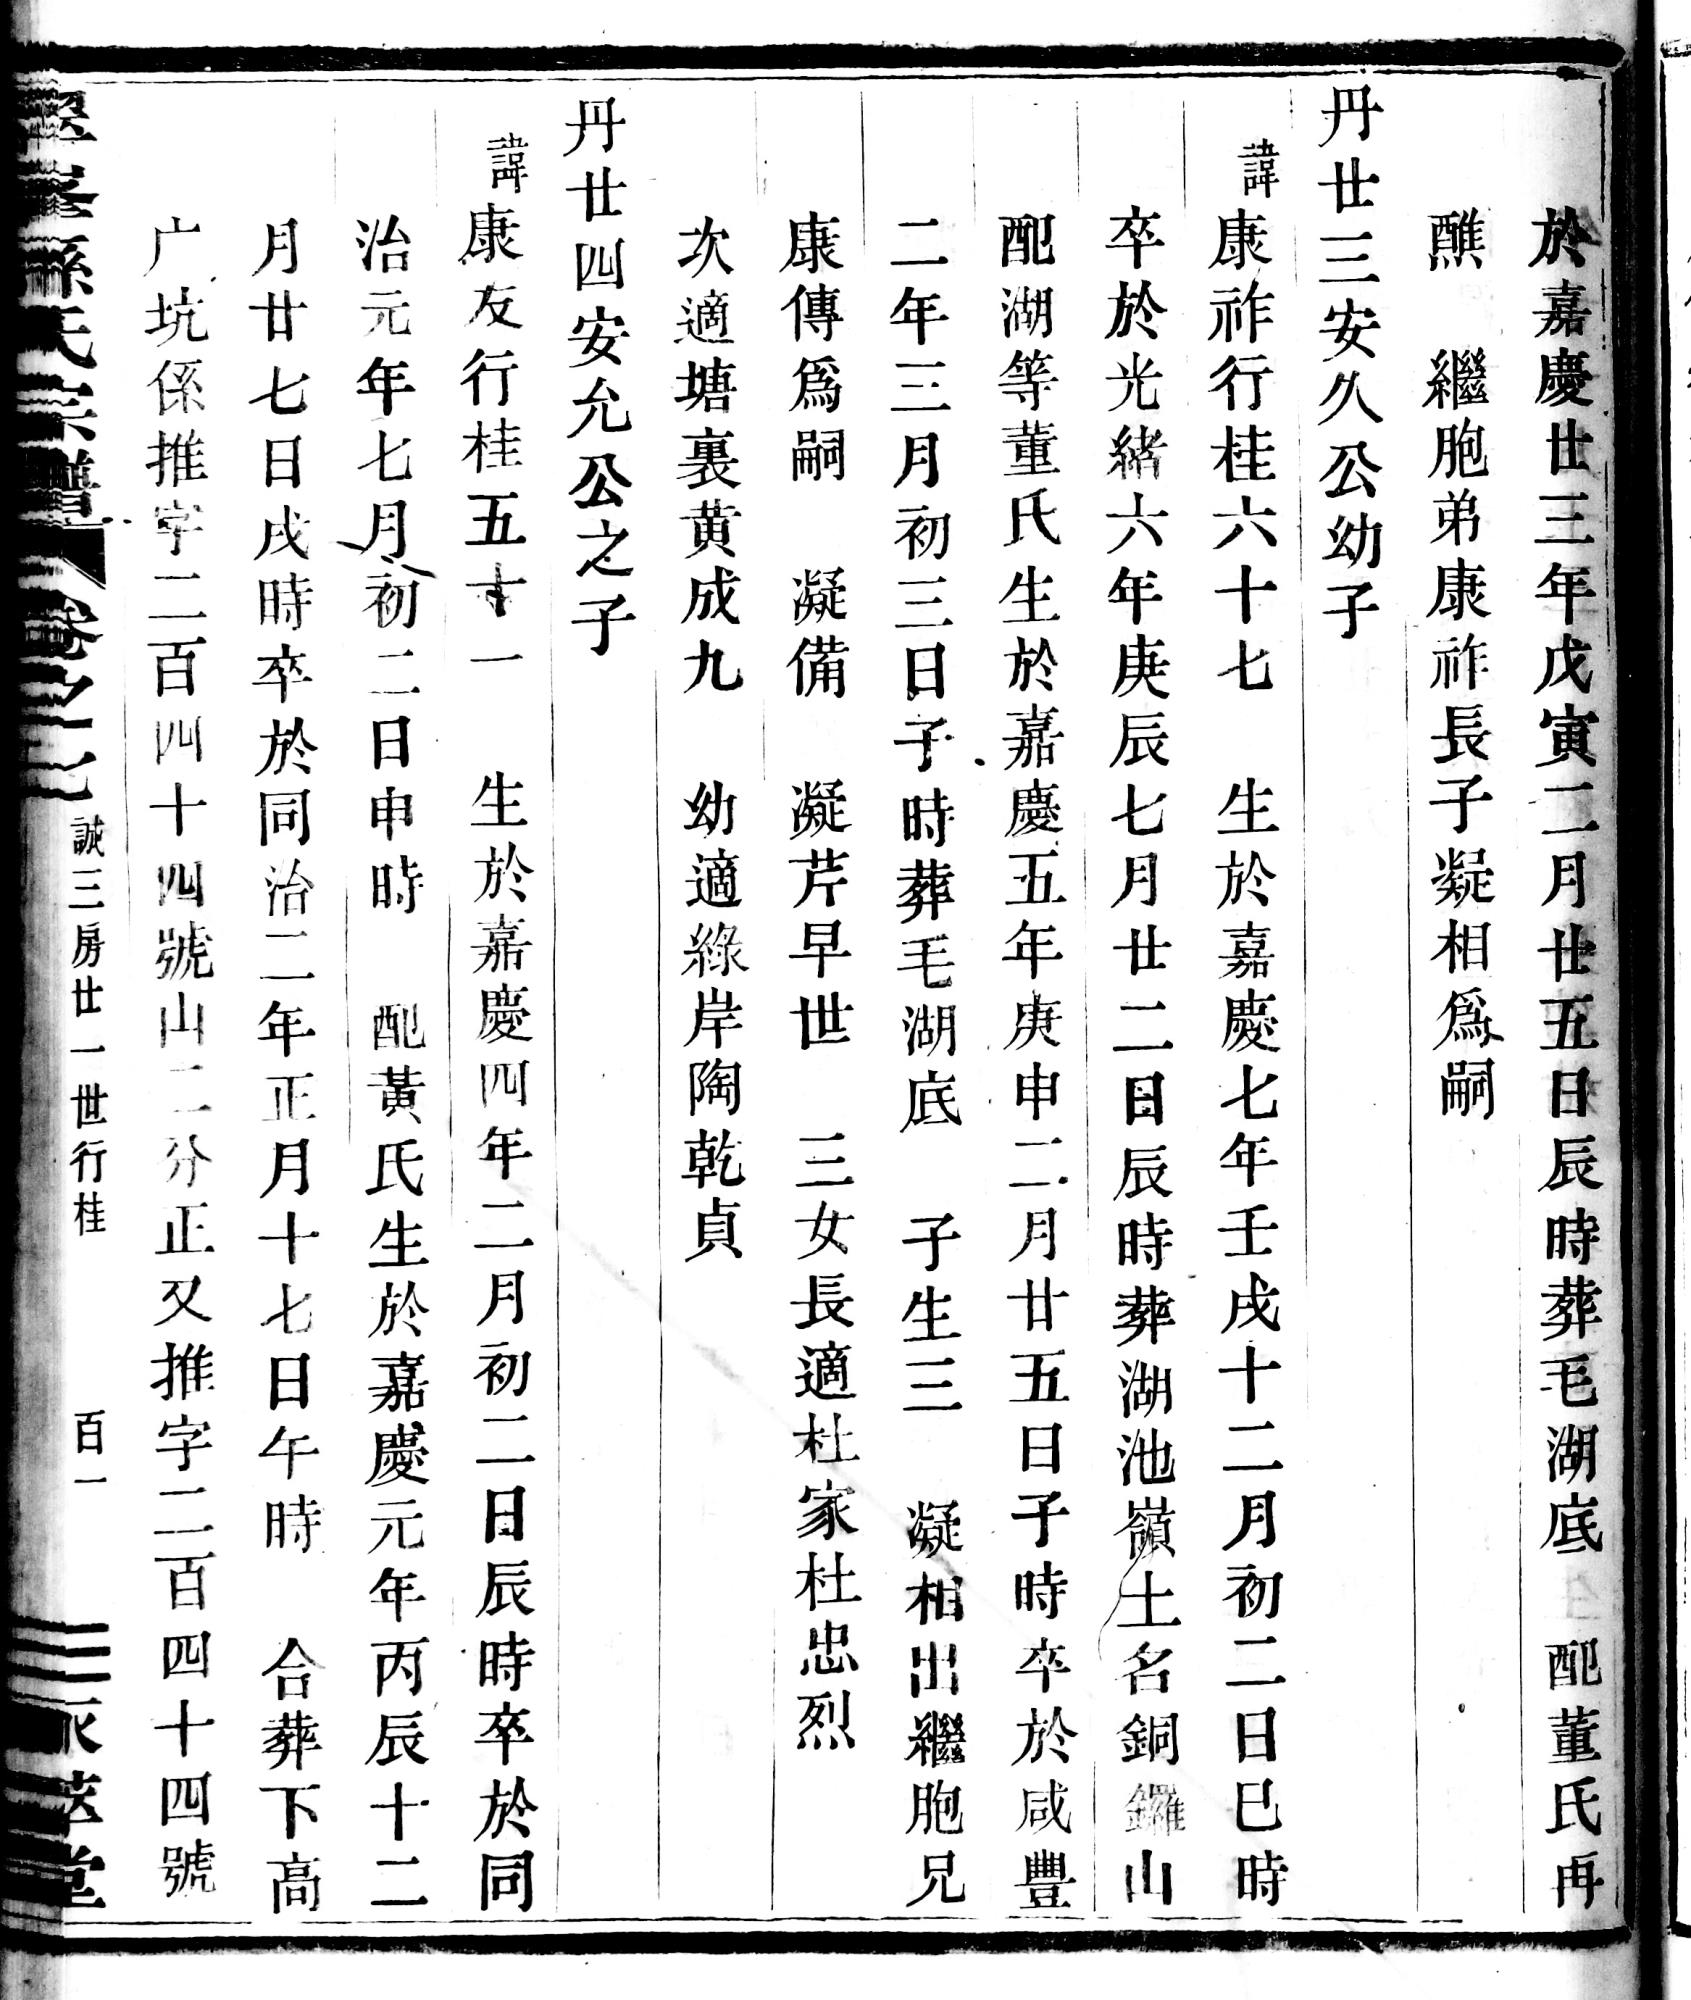 於嘉慶廿三年戊寅二月廿五日辰時葬毛湖底 配董氏再
醮 繼胞弟康祚長子凝相爲嗣
丹廿三安久公幼子
諱康祚行桂六十七 生於嘉慶七年壬戌十二月初二日巳時
卒於光緒六年庚辰七月廿二日辰時葬湖池嶺土名銅鑼山
配湖等董氏生於嘉慶五年庚申二月廿五日子時卒於咸豐
二年三月初三日子時葬毛湖底 子生三 凝相出繼胞兄
康傳爲嗣 凝備 凝芹早世 三女長適杜家杜忠烈
次適塘裏黄成九 幼適綠岸陶乾貞
丹廿四安允公之子
諱康友行桂五十一 生於嘉慶四年二月初二日辰時卒於同
治元年七月初二日申時 配黃氏生於嘉慶元年丙辰十二
月廿七日戌時卒於同治二年正月十七日午時 合葬下高
广坑係推字二百四十四號山二分正又推字二百四十四號
孫氏宗譜 卷之七 誠三房廿一世行桂 百一 萃堂